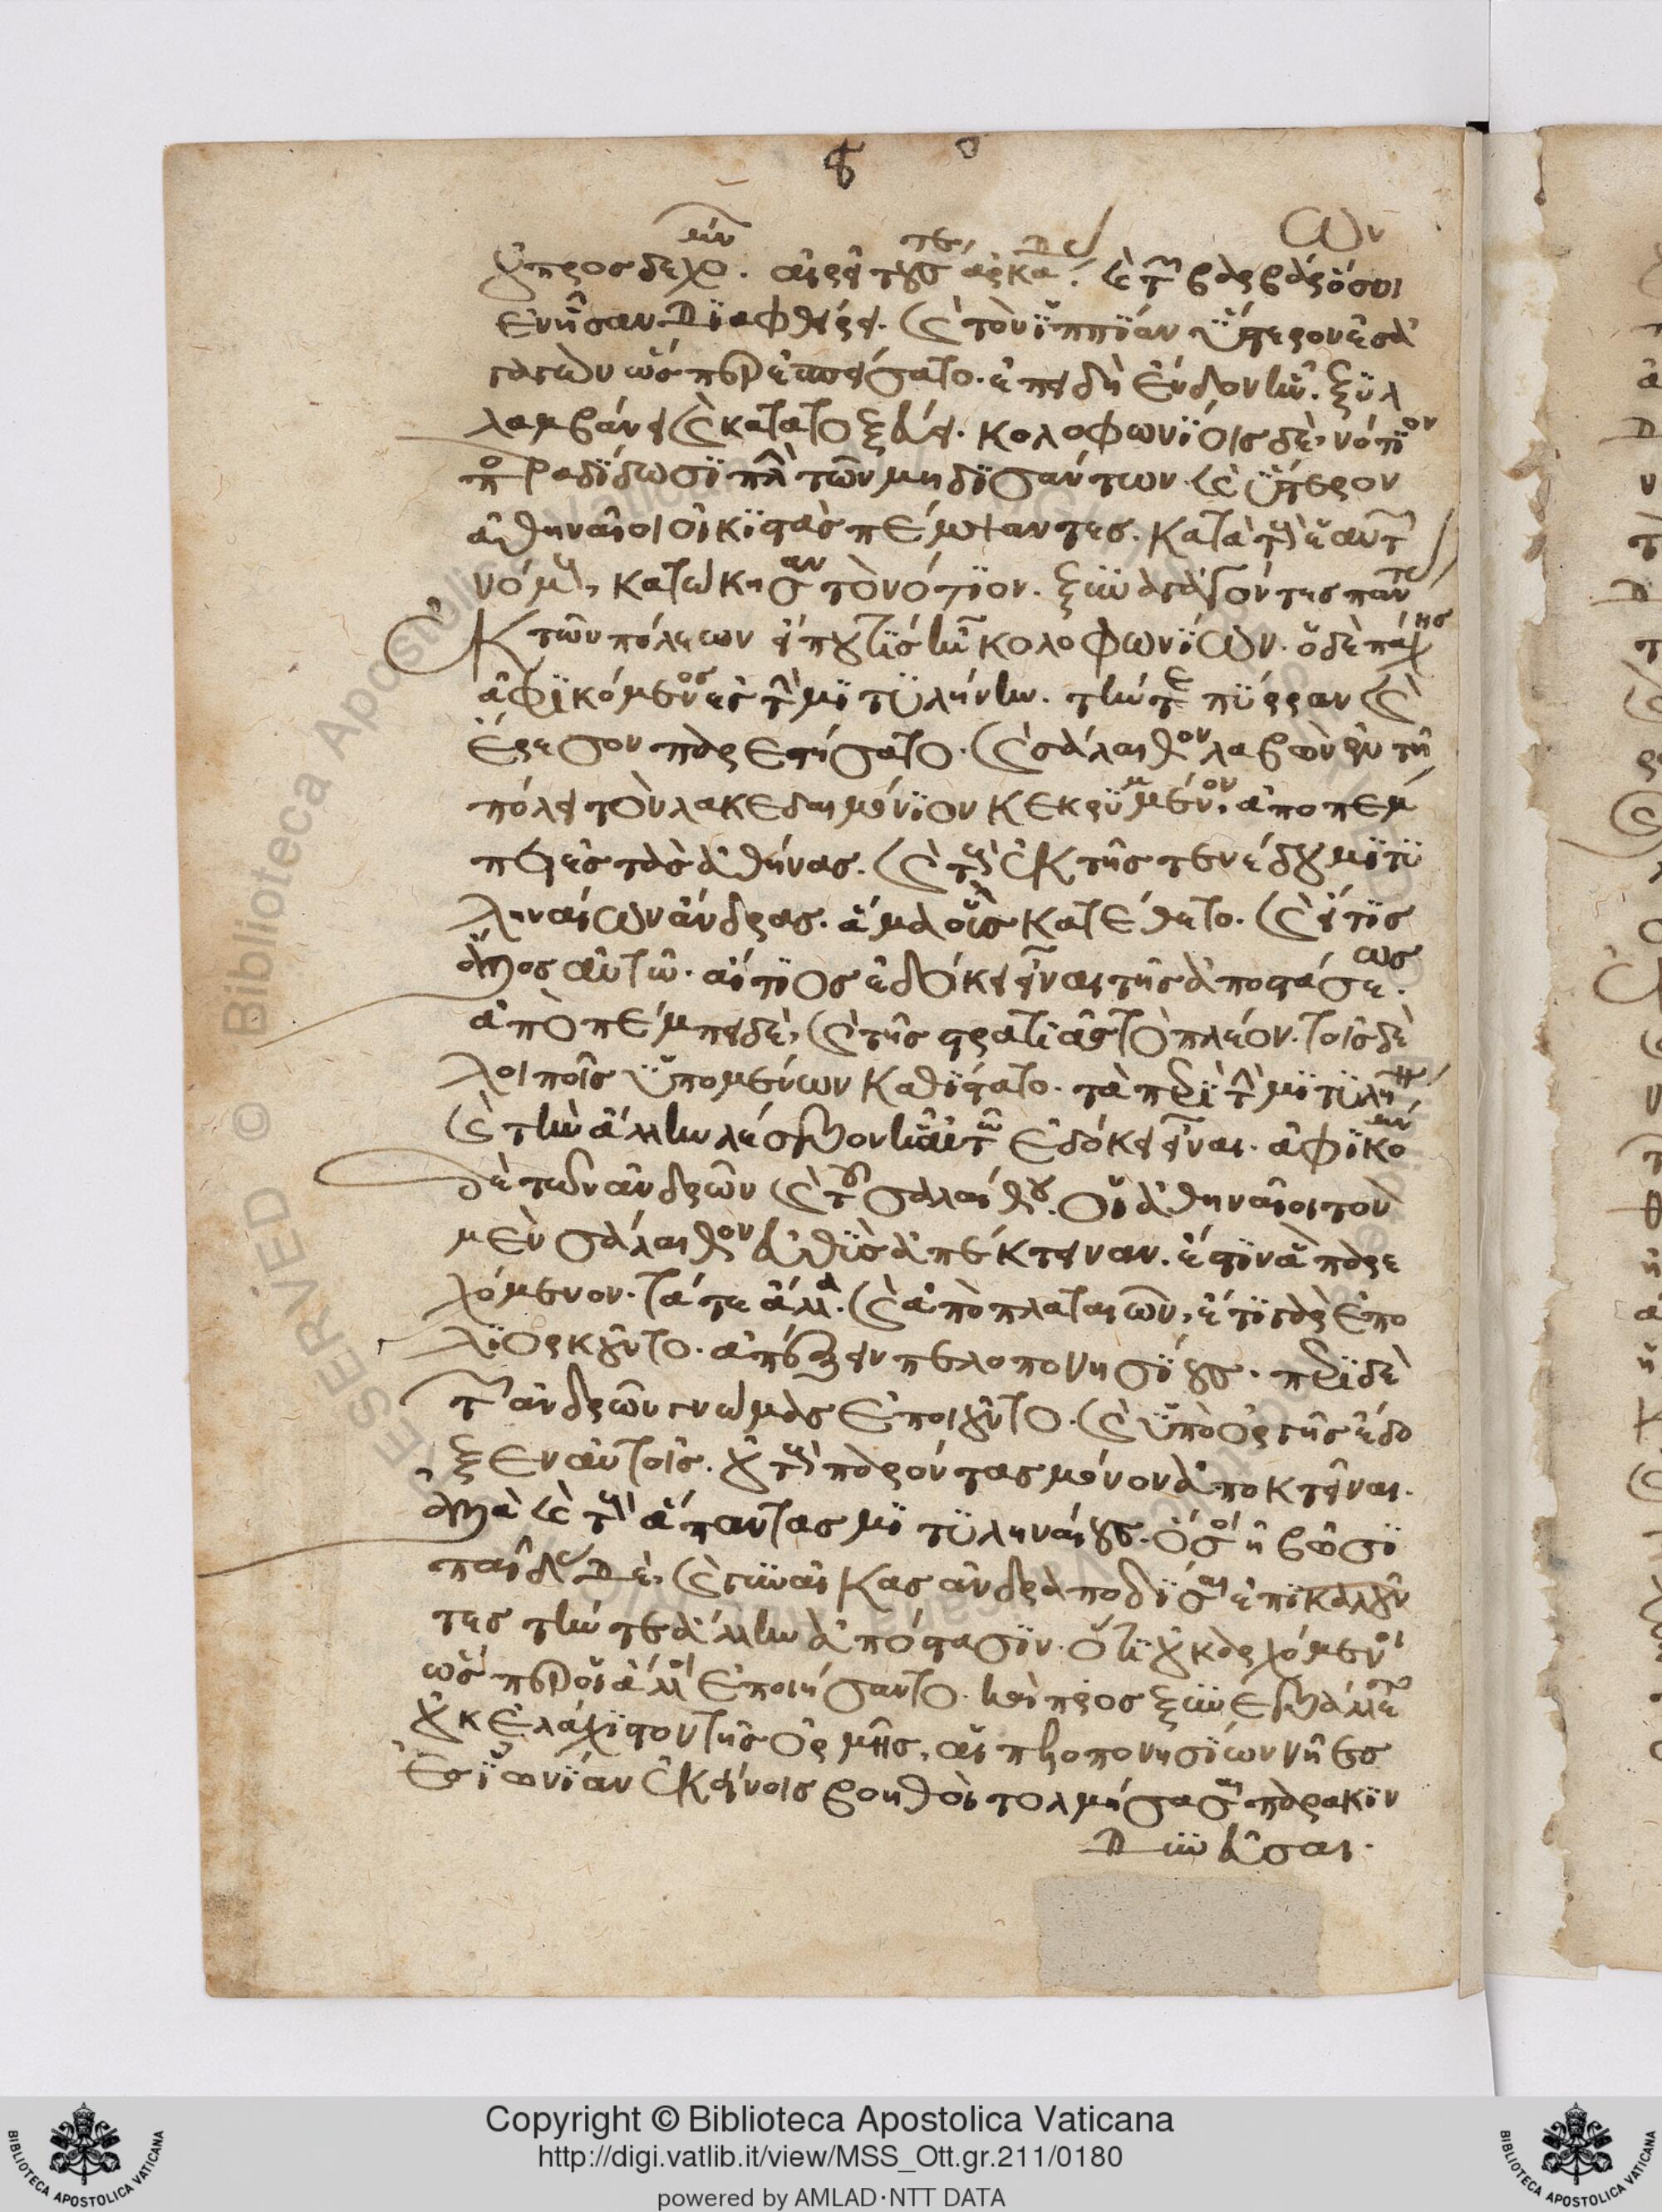 οὐ προσδεχομένων αἱρεῖ τούς τε ἀρκάδας καὶ τῶν βαρβάρων ὅσοι
ἐνῆσαν διαφθείρει. καὶ τὸν ἱππίαν ὕστερον ἐσα
γαγὼν ὥσπερ ἐσπείσατο. ἐπειδὴ ἔνδον ἦν. ξυλ
λαμβάνει καὶ κατατοξεύει. κολοφωνίοις δὲ νότιον
παραδίδωσι πλὴν τῶν μηδισάντων. καὶ ὕστερον
ἀθηναῖοι οἰκιστὰς πέμψαντες. κατὰ τοὺς ἑαυτῶν
νόμους κατώκησαν τὸ νότιον. ξυναγαγόντες πάντας
ἐκ τῶν πόλεων εἴ που τίς ἦν κολοφωνίων. ὁ δὲ πάχης
ἀφικόμενος ἐς τὴν μιτυλήνην. τήν τε πύρραν καὶ
ἔρεσον παρεστήσατο. καὶ σάλαιθον λαβὼν ἐν τῇ
πόλει τὸν λακεδαιμόνιον κεκρυμμένον, ἀποπέμ
πει ἐς τὰς ἀθήνας. καὶ τοὺς ἐκ τῆς τενέδου μιτυ
ληναίων ἄνδρας. ἅμα οὓς κατέθετο. καὶ εἴ τις
ἄλλος αὐτῶ. αἴτιος ἐδόκει εἶναι τῆς ἀποστάσεως.
ἀποπέμπει δὲ, καὶ τῆς στρατιᾶς τὸ πλέον. τοῖς δὲ
λοιποῖς ὑπομένων καθίστατο. τὰ περὶ τὴν μιτυλήνην
καὶ τὴν ἄλλην λέσβον ἧ αὐτῶ ἐδόκει εἶναι. ἀφικομένων
δὲ τῶν ἀνδρῶν καὶ τοῦ σαλαίθου. οἱ ἀθηναῖοι τὸν
μὲν σάλαιθον εὐθὺς ἀπέκτειναν. ἔστιν ἃ παρε
χόμενον. τά τε ἄλλα. καὶ ἀπὸ πλαταιῶν, ἔτι γὰρ ἐπο
λιορκοῦντο. ἀπάξειν πελοποννησίους. περὶ δὲ
τῶν ἀνδρῶν γνώμας ἐποιοῦντο. καὶ ὑπὸ ὀργῆς ἔδο
ξεν αὐτοῖς. οὐ τοὺς παρόντας μόνον ἀποκτεῖναι.
ἀλλὰ καὶ τοὺς ἅπαντας μιτυληναίους. ὅσοι ἡβῶσι
παῖδας δὲ, καὶ γυναῖκας ἀνδραποδίσαι ἐπικαλοῦν
τες τήν τε ἄλλην ἀπόστασιν. ὅτι οὐκ ἀρχόμενοι
ὥσπερ οἱ ἄλλοι ἐποιήσαντο. καὶ προσξυνεβάλλετο
οὐκ ἐλάχιστον τῆς ὁρμῆς, αἱ πελοποννησίων νῆες
ἐς ἰωνίαν ἐκείνοις βοηθοὶ τολμήσασαι παρακιν
δυνεῦσαι.
Copyright © Biblioteca Apostolica Vaticana
http://digi.vatlib.it/view/MSS_Ott.gr.211/0180
powered by AMLAD·NTT DATA
BIBLIOTECA APOSTOLICA VATICANA
BIBLIOTECA APOSTOLICA VATICANA